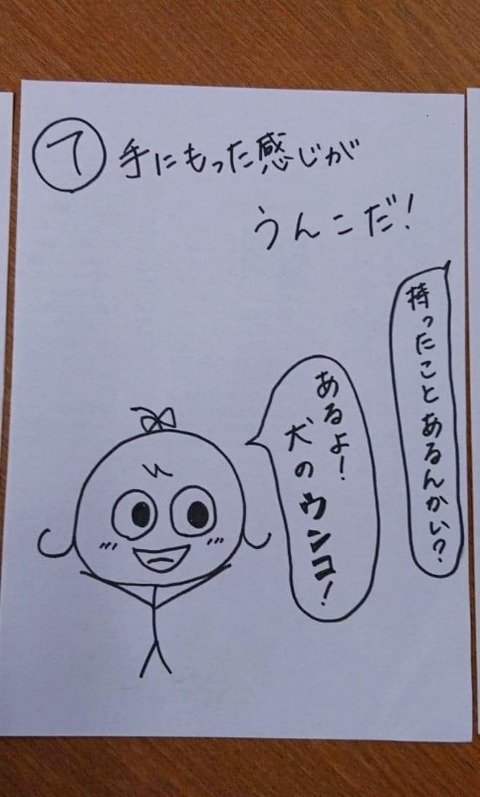 て 手にもった感じが
うんこだ!
持ったことあるんかい?
あるよ!
犬のウンコ!